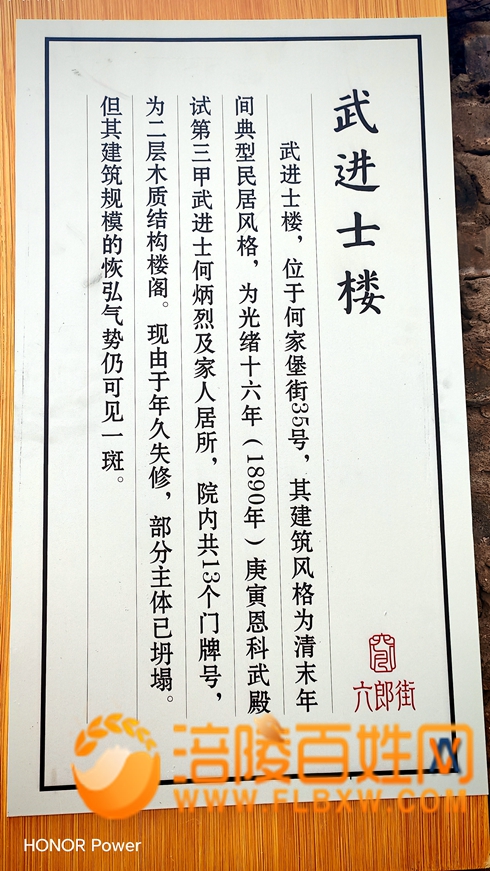 武进士楼
武进士楼，位于何家堡街35号，其建筑风格为清末年
间典型民居风格，为光绪十六年（1890年）庚寅恩科武殿
试第三甲武进士何炳烈及家人居所，院内共13个门牌号，
为二层木质结构楼阁。现由于年久失修，部分主体已坍塌。
但其建筑规模的恢弘气势仍可见一斑。
六郎街
涪陵百姓网
WWW.FLBXW.COM
HONOR Power